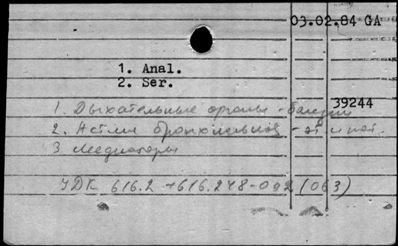 03.02.84 GA
1. Anal.
2. Ser.
39244
1. Дыхательные органы - болезни
2. Астма бронхиальная - эт. и пат.
3 Медиаторы
УДК 616.2 + 616.248-092 (063)